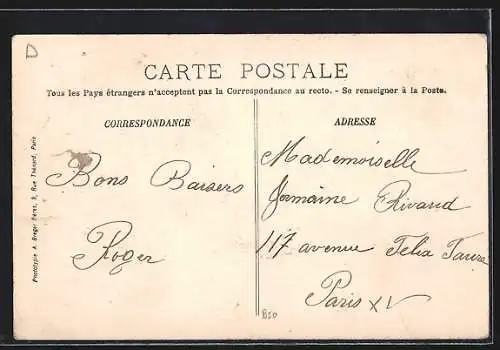 D
CARTE POSTALE
Tous les Pays étrangers n'acceptent pas la Correspondance au recto. - Se renseigner à la Poste.
CORRESPONDANCE
Bons Baisers
Roger
ADRESSE
Mademoiselle
Jermaine Rivaud
117 avenue Felix Faure
Paris XV
Prototypie A. Breger Frères, 9, Rue Thénard, Paris